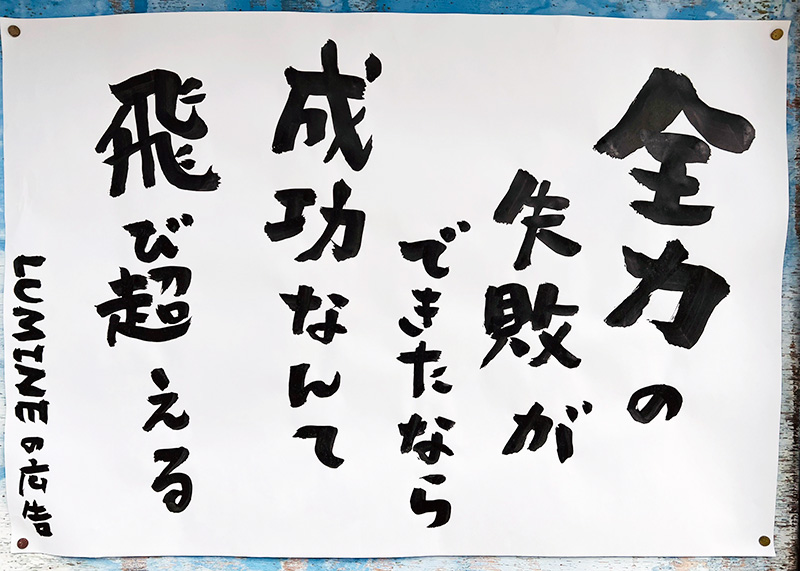 全力の
失敗が
できたなら
成功なんて
飛び超える
LUMINEの広告